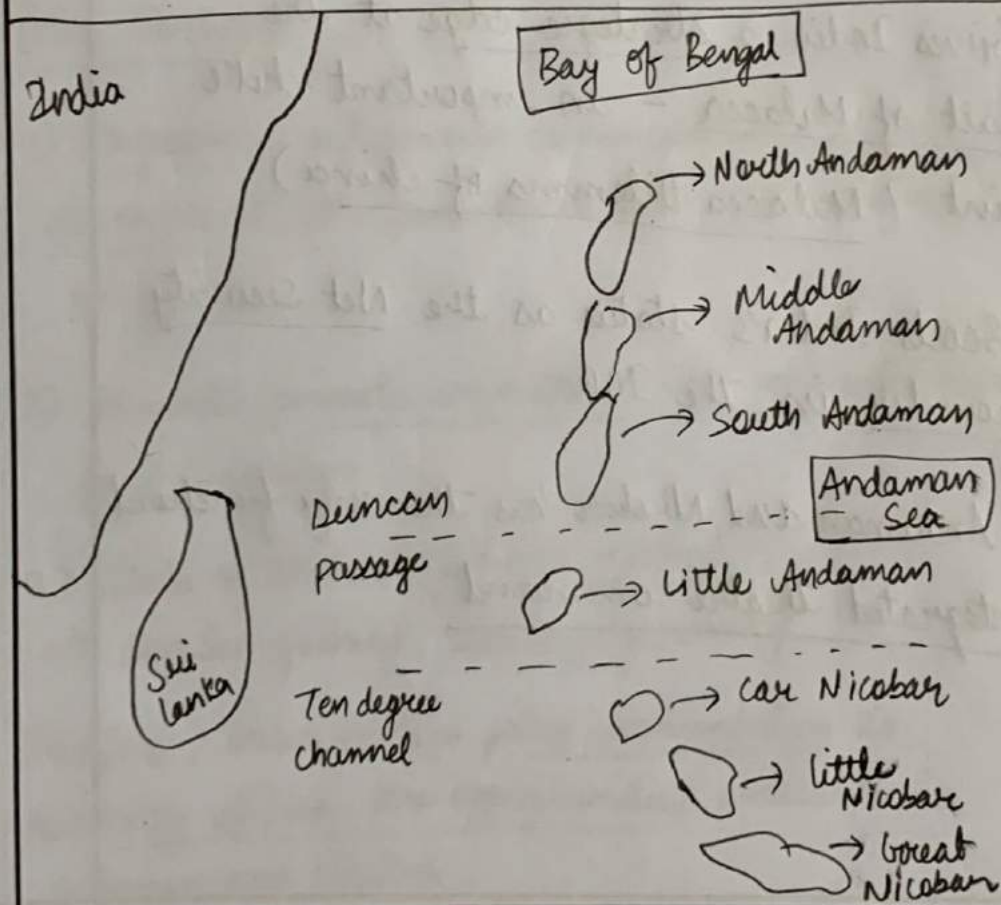 India
Bay of Bengal
North Andaman
Middle
Andaman
South Andaman
Andaman
Sea
Duncan
passage
Little Andaman
Sri
Lanka
Ten degree
channel
Car Nicobar
Little
Nicobar
Great
Nicobar